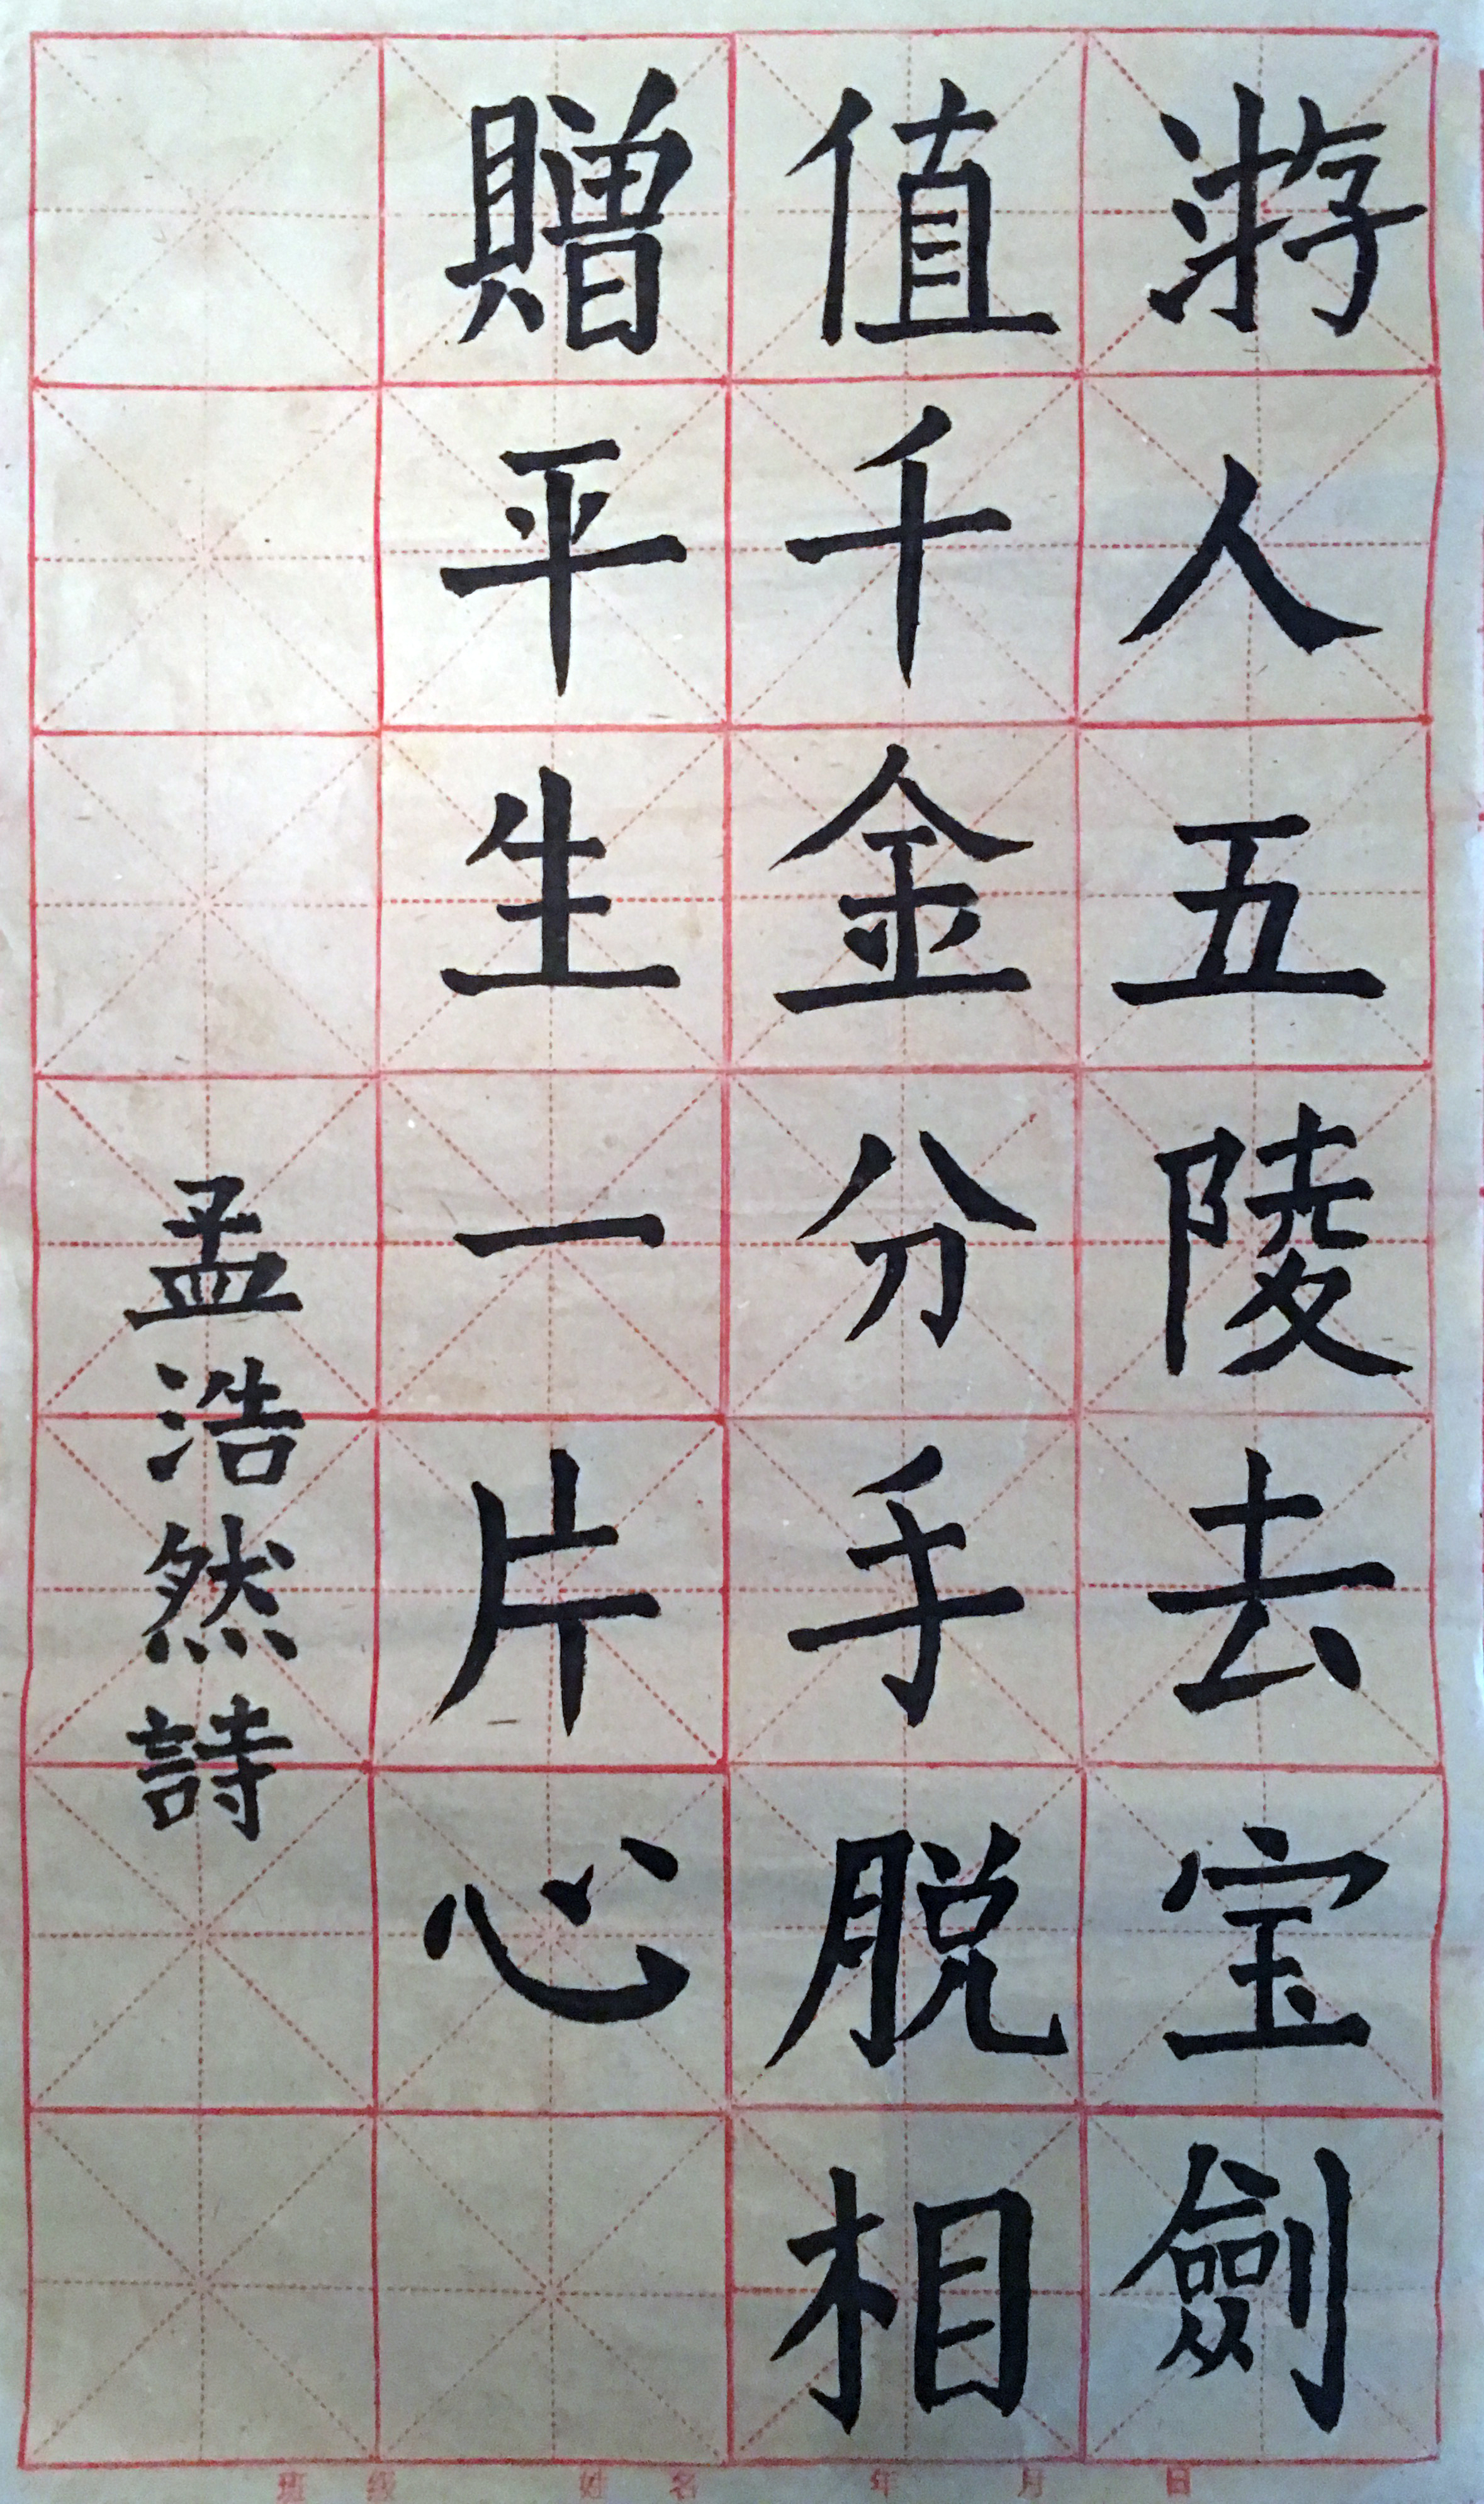 游人五陵去宝劍
值千金分手脱相
贈平生一片心
孟浩然詩
班级 姓名 年 月 日